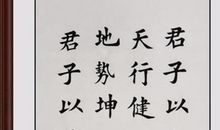 君子以
天行健
地勢坤
君子以